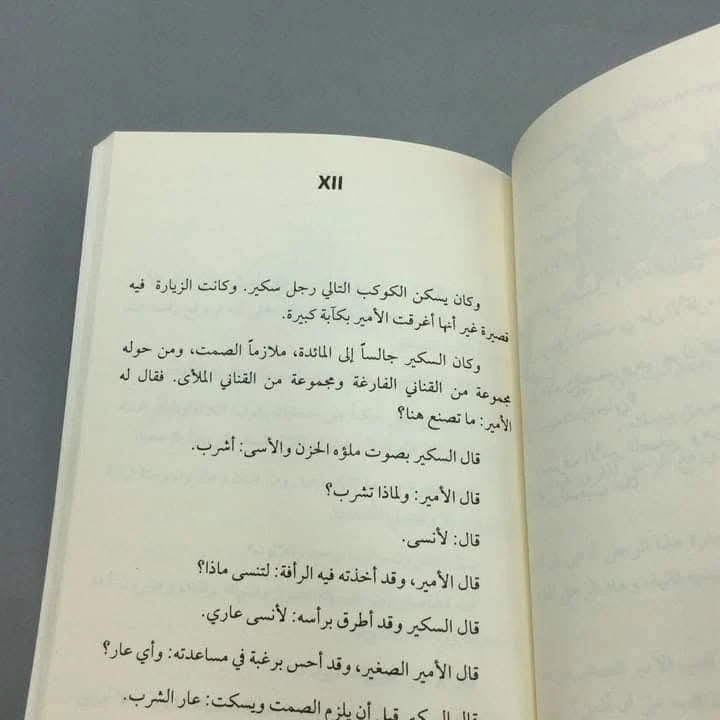 XII
وكان يسكن الكوكب التالي رجل سكير. وكانت الزيارة فيه
قصيرة غير أنها أغرقت الأمير بكآبة كبيرة.
وكان السكير جالساً إلى المائدة، ملازماً الصمت، ومن حوله
مجموعة من القناني الفارغة ومجموعة من القناني الملأى. فقال له
الأمير: ما تصنع هنا؟
قال السكير بصوت ملؤه الحزن والأسى: أشرب.
قال الأمير: ولماذا تشرب؟
قال: لأنسى.
قال الأمير، وقد أخذته فيه الرأفة: لتنسى ماذا؟
قال السكير وقد أطرق برأسه: لأنسى عاري.
قال الأمير الصغير، وقد أحس برغبة في مساعدته: وأي عار؟
قال السكير قبل أن يلزم الصمت ويسكت: عار الشرب.